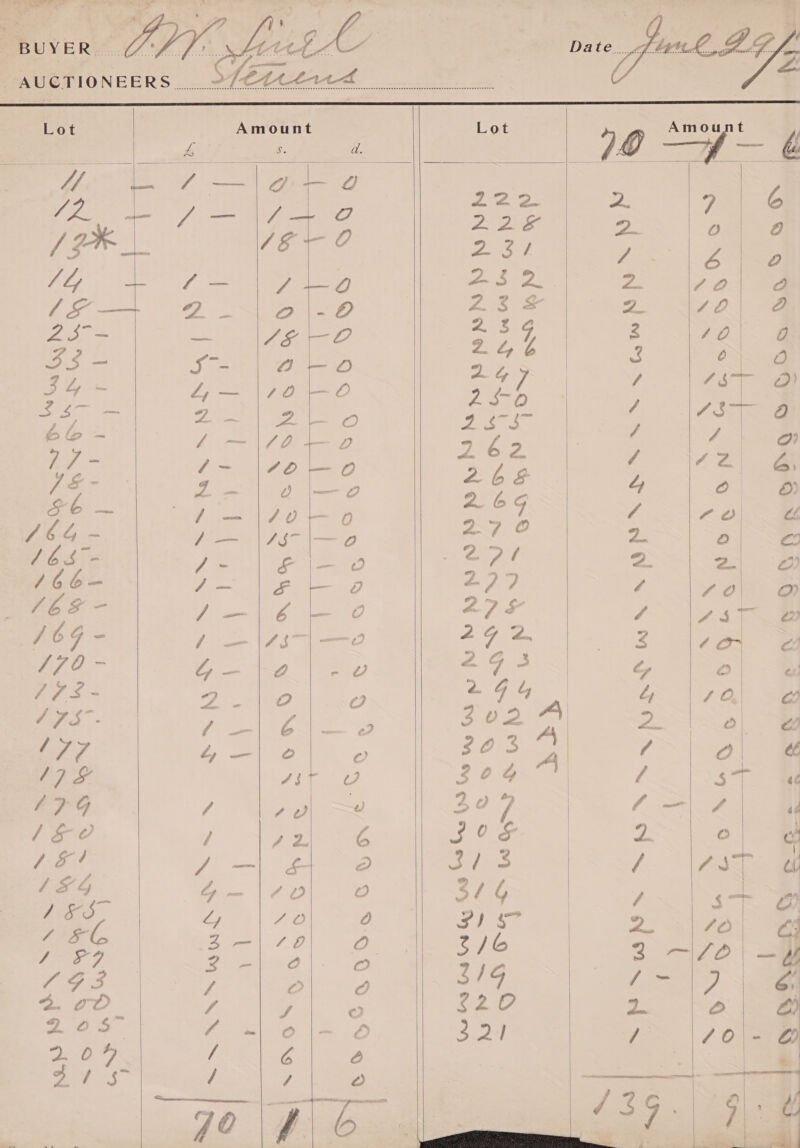 BUYER O.W. Sinel Date June 29/2
AUCTIONEERS Stevens
Lot Amount
£ s. d.
11 — 1 — 0 — 0
12 — 1 — 1 — 0
12* — 18 — 0
14 — 1 — 1 — 0
18 — 2 - 0 - 0
25 — — 18 — 0
33 — 5 - 0 — 0
34 - 4 — 10 — 0
35 — 2 — 2 — 0
66 - 1 — 10 — 0
77 - 1 - 10 — 0
78 - 2 — 0 — 0
86 — 1 — 10 — 0
164 - 1 — 15 — 0
165 - 1 - 8 — 0
166 — 1 — 8 — 0
168 - 1 — 6 — 0
169 - 1 — 15 — 0
170 - 4 — 0 - 0
173 - 2 - 0 0
175. 1 — 6 — 0
177 4 — 0 0
178 15 0
179 1 10 0
180 1 12 6
181 1 — 8 0
184 4 — 10 0
185 4 10 0
186 3 — 10 0
187 3 - 0 0
193 1 0 0
200 1 1 0
205 1 - 0 - 0
207 1 6 0
215 1 1 0
70 1 6
Lot Amount
70 — 1 — 6
222 2 7 6
228 2 0 0
231 1 6 0
232 2 10 0
238 2 10 0
239 3 10 0
246 3 0 0
247 1 15 0
250 1 15 0
255 1 1 0
262 1 12 6
268 4 0 0
269 1 10 0
270 2 0 0
271 2 2 0
277 1 10 0
278 1 15 0
292 3 10 0
293 4 0 0
294 4 10 0
302 A 2 0 0
303 A 1 0 0
304 A 1 5 0
307 1 — 1 0
308 2 0 0
313 1 15 0
314 1 5 0
315 2 10 0
316 3 — 10 — 0
319 1 — 7 6
320 2 0 0
321 1 10 - 0
139. 9. 0